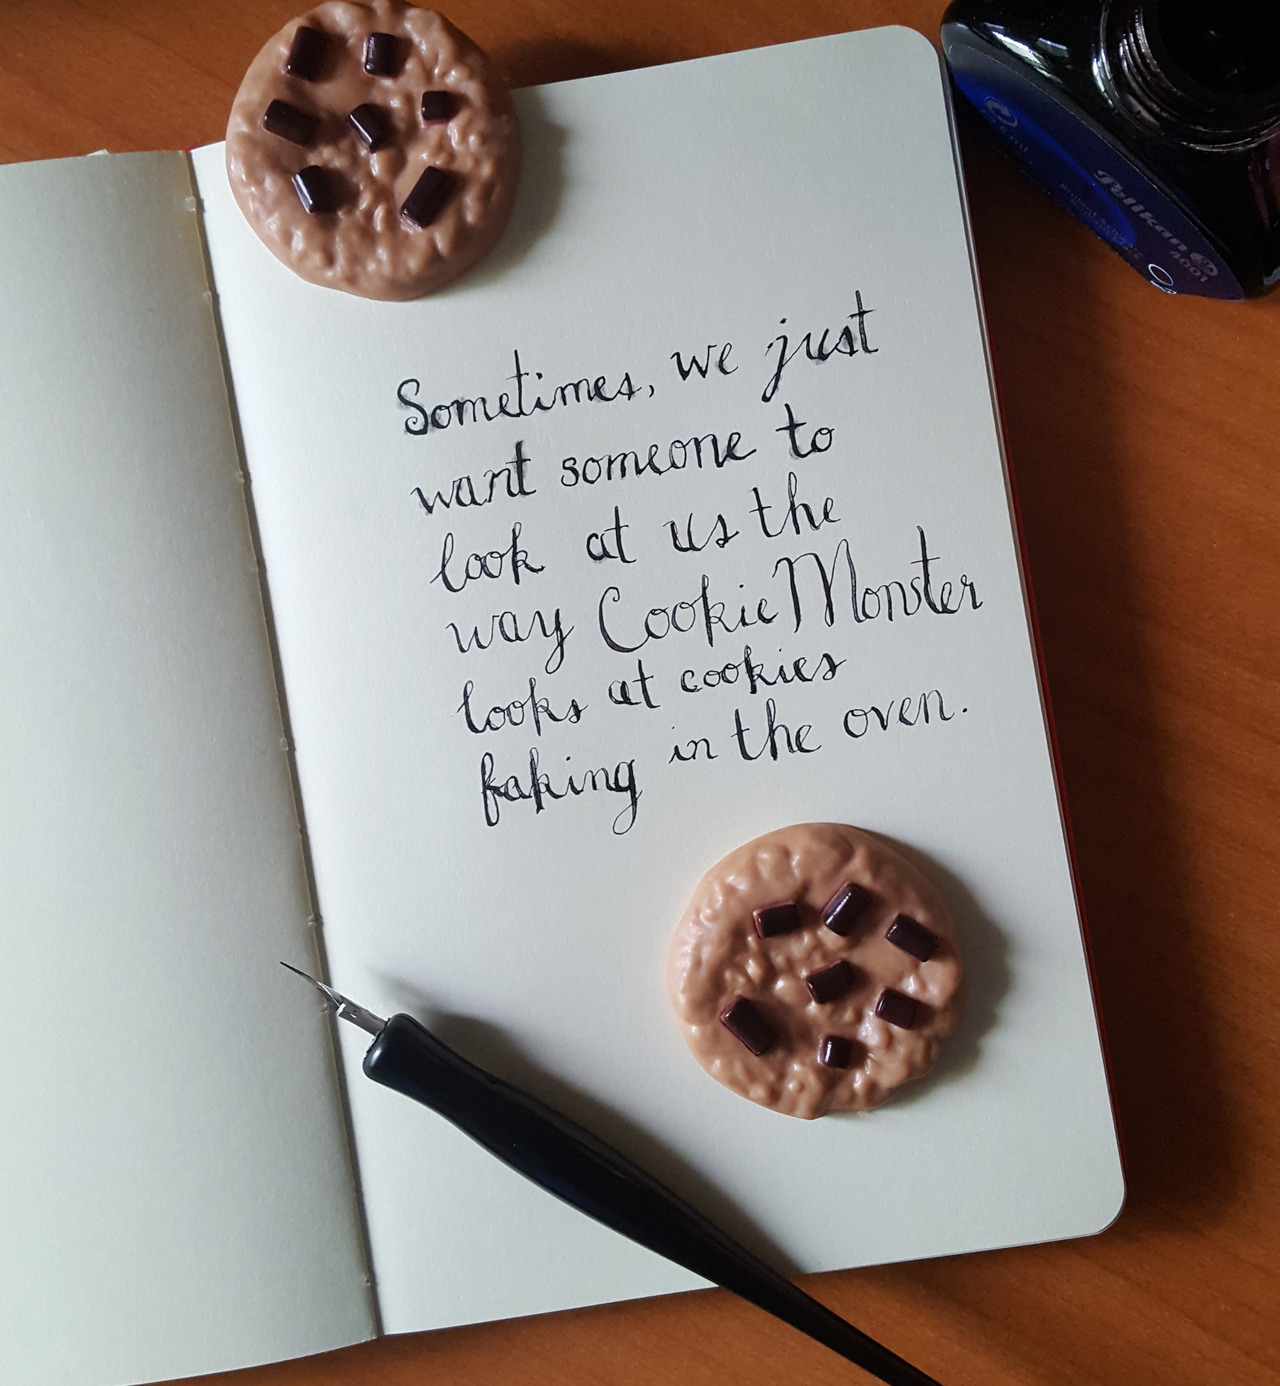 Sometimes, we just
want someone to
look at us the
way Cookie Monster
looks at cookies
baking in the oven.
Pelikan
4001